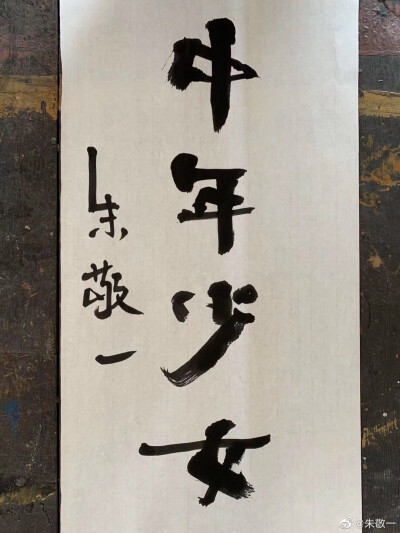 中年少女
朱敬一
@朱敬一